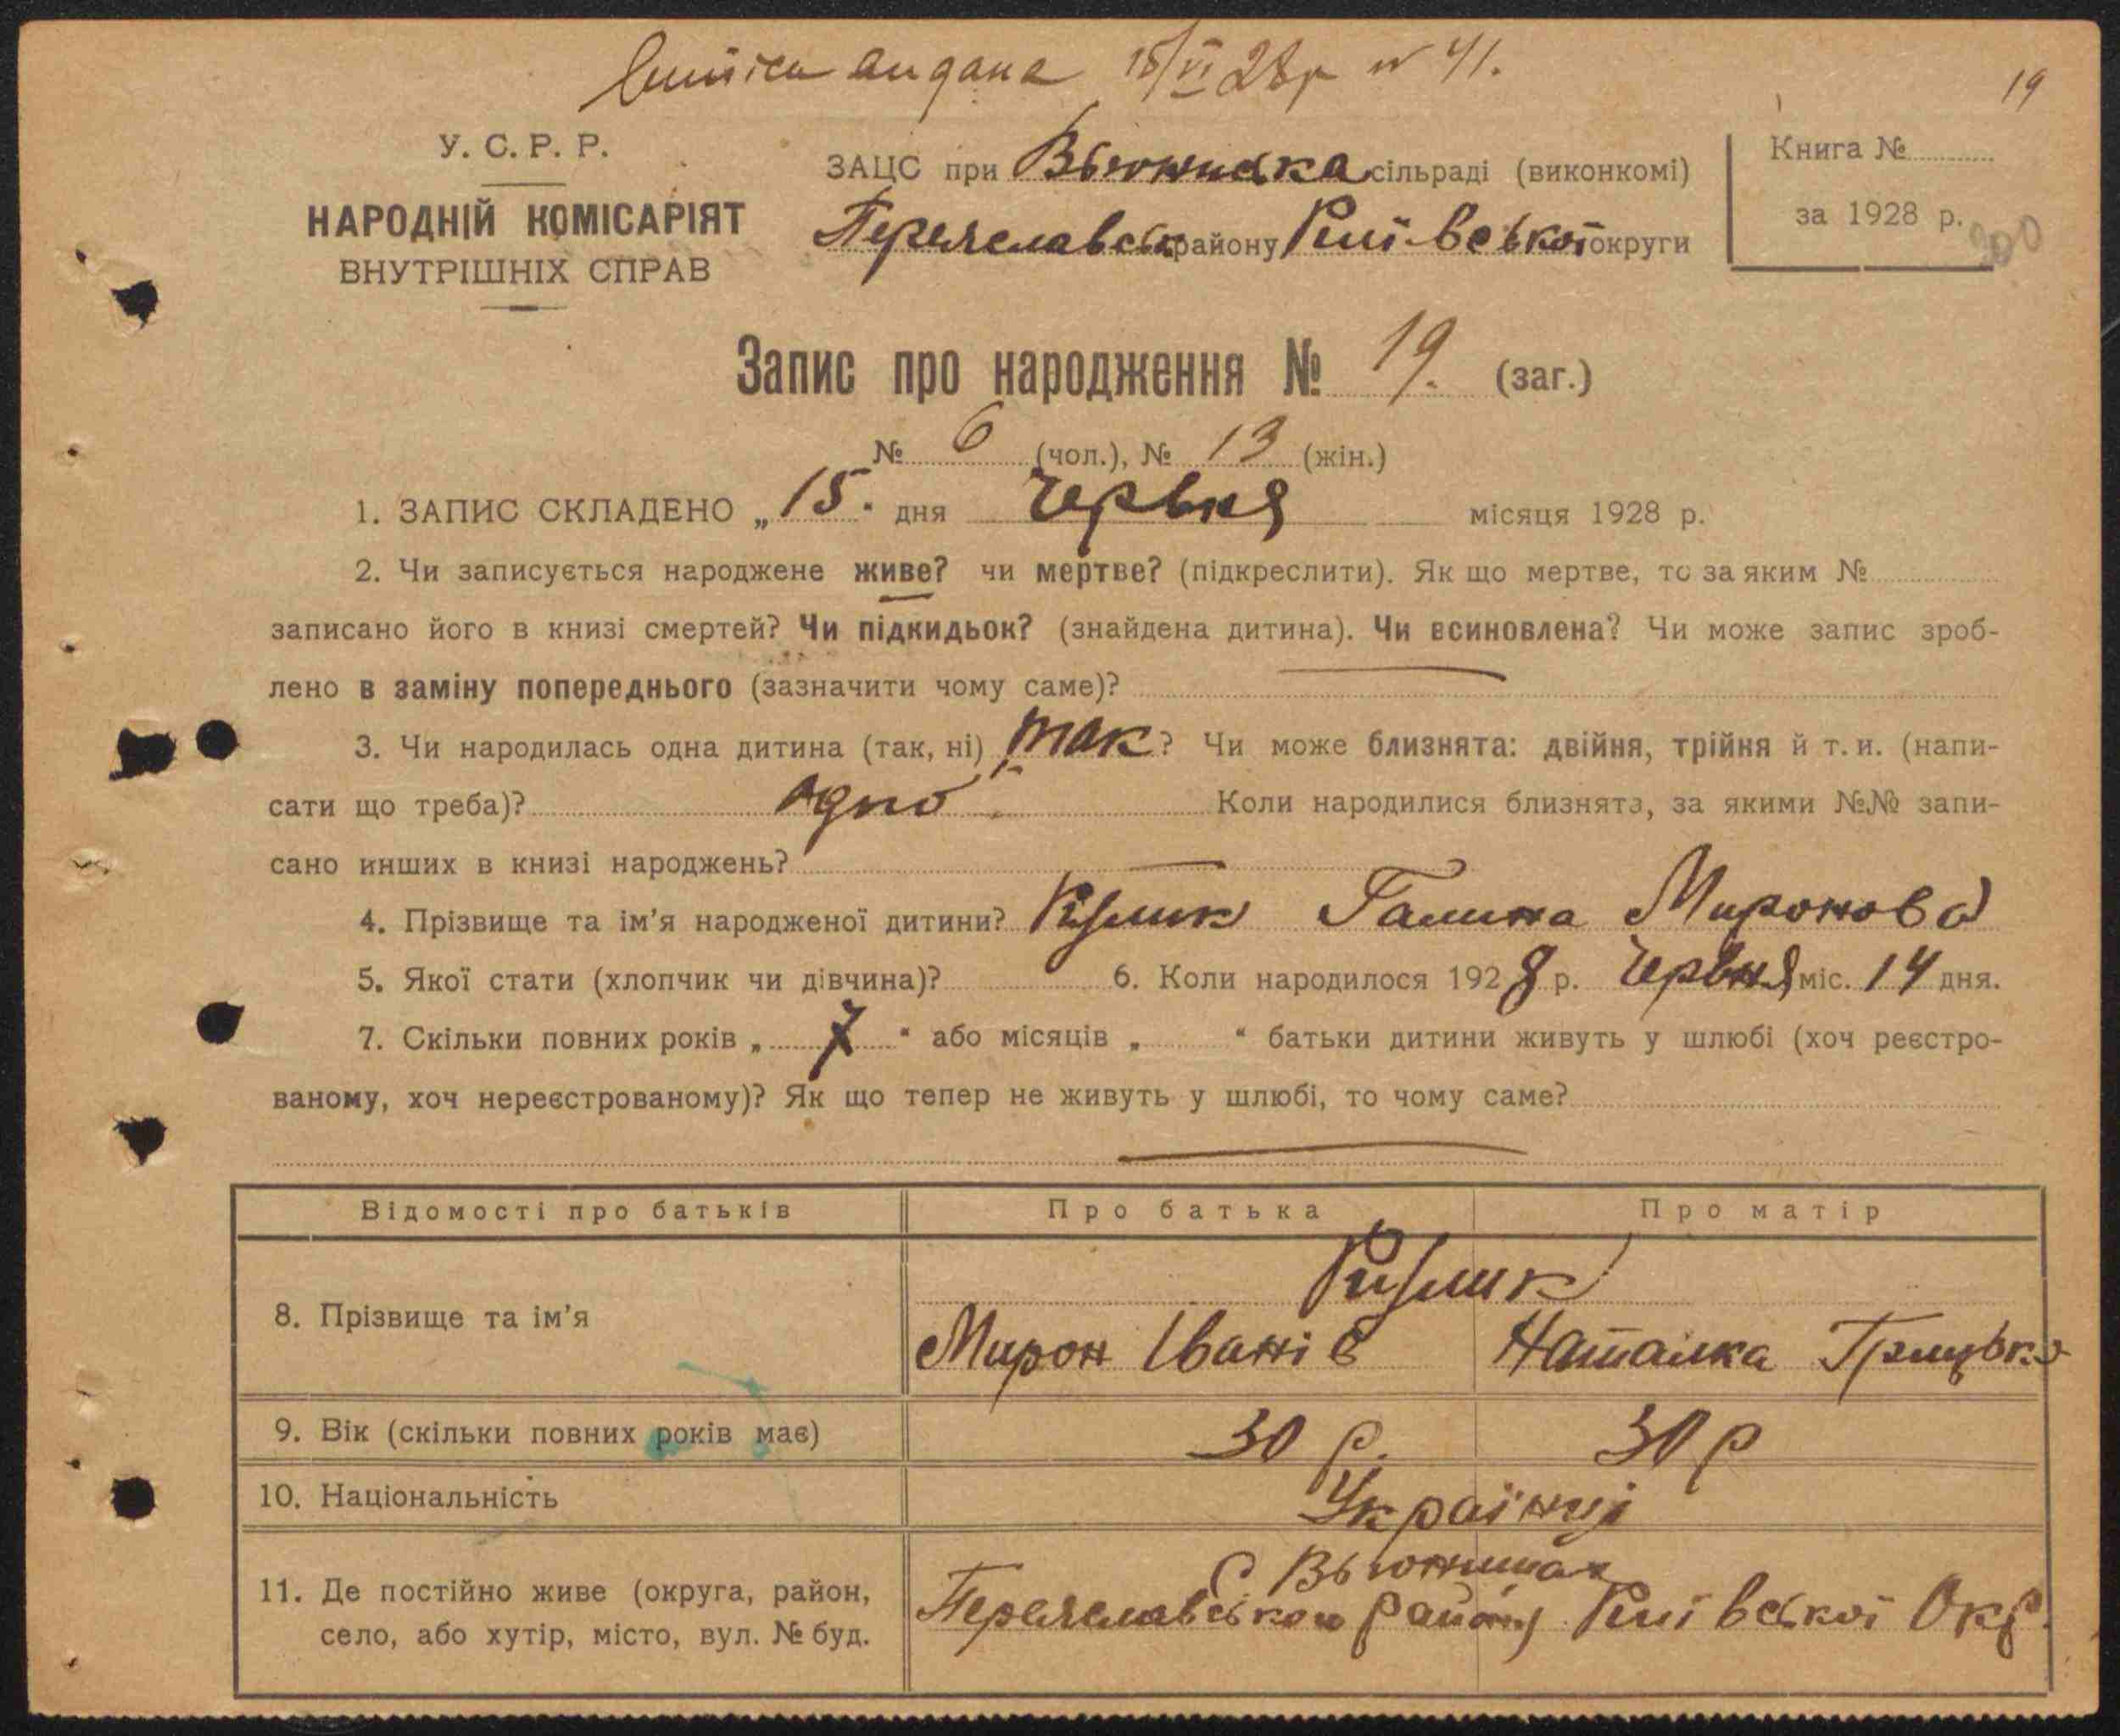 Виписа видана 15/VI 28 р № 41.
19
У. С. Р. Р.
НАРОДНІЙ КОМІСАРІЯТ
ВНУТРІШНІХ СПРАВ
ЗАЦС при Вьюниська сільраді (виконкомі)
Переяславськ району Київської округи
Книга №
за 1928 р.
300
Запис про народження № 19. (заг.)
№ 6 (чол.), № 13 (жін.)
1. ЗАПИС СКЛАДЕНО „15" дня Червня місяця 1928 р.
2. Чи записується народжене живе? чи мертве? (підкреслити). Як що мертве, то за яким №
записано його в книзі смертей? Чи підкидьок? (знайдена дитина). Чи всиновлена? Чи може запис зроб-
лено в заміну попереднього (зазначити чому саме)?
3. Чи народилась одна дитина (так, ні) так? Чи може близнята: двійня, трійня й т. и. (напи-
сати що треба)? одно Коли народилися близнята, за якими №№ запи-
сано инших в книзі народжень?
4. Прізвище та ім'я народженої дитини? Кулик Галина Миронова
5. Якої стати (хлопчик чи дівчина)? 6. Коли народилося 1928 р. Червня міс. 14 дня.
7. Скільки повних років „ 7 " або місяців „ " батьки дитини живуть у шлюбі (хоч реєстро-
ваному, хоч нереєстрованому)? Як що тепер не живуть у шлюбі, то чому саме?
Відомості про батьків Про батька Про матір
8. Прізвище та ім'я Кулик
Мирон Іванів Наталка Грицьк
9. Вік (скільки повних років має) 30 р. 30 р
10. Національність Українці
11. Де постійно живе (округа, район,
село, або хутір, місто, вул. № буд.
С Вьюнищах
Переяславського району Київської Окр.